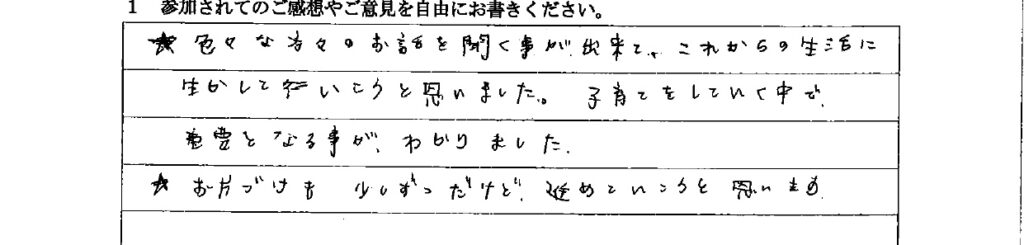 1 参加されてのご感想やご意見を自由にお書きください。
★ 色々な方々のお話を聞く事が出来て、これからの生活に
生かして行いこうと思いました。子育てをしていく中で、
重要となる事が、わかりました。
★ お片づけも 少しずつだけど、進めていこうと思います